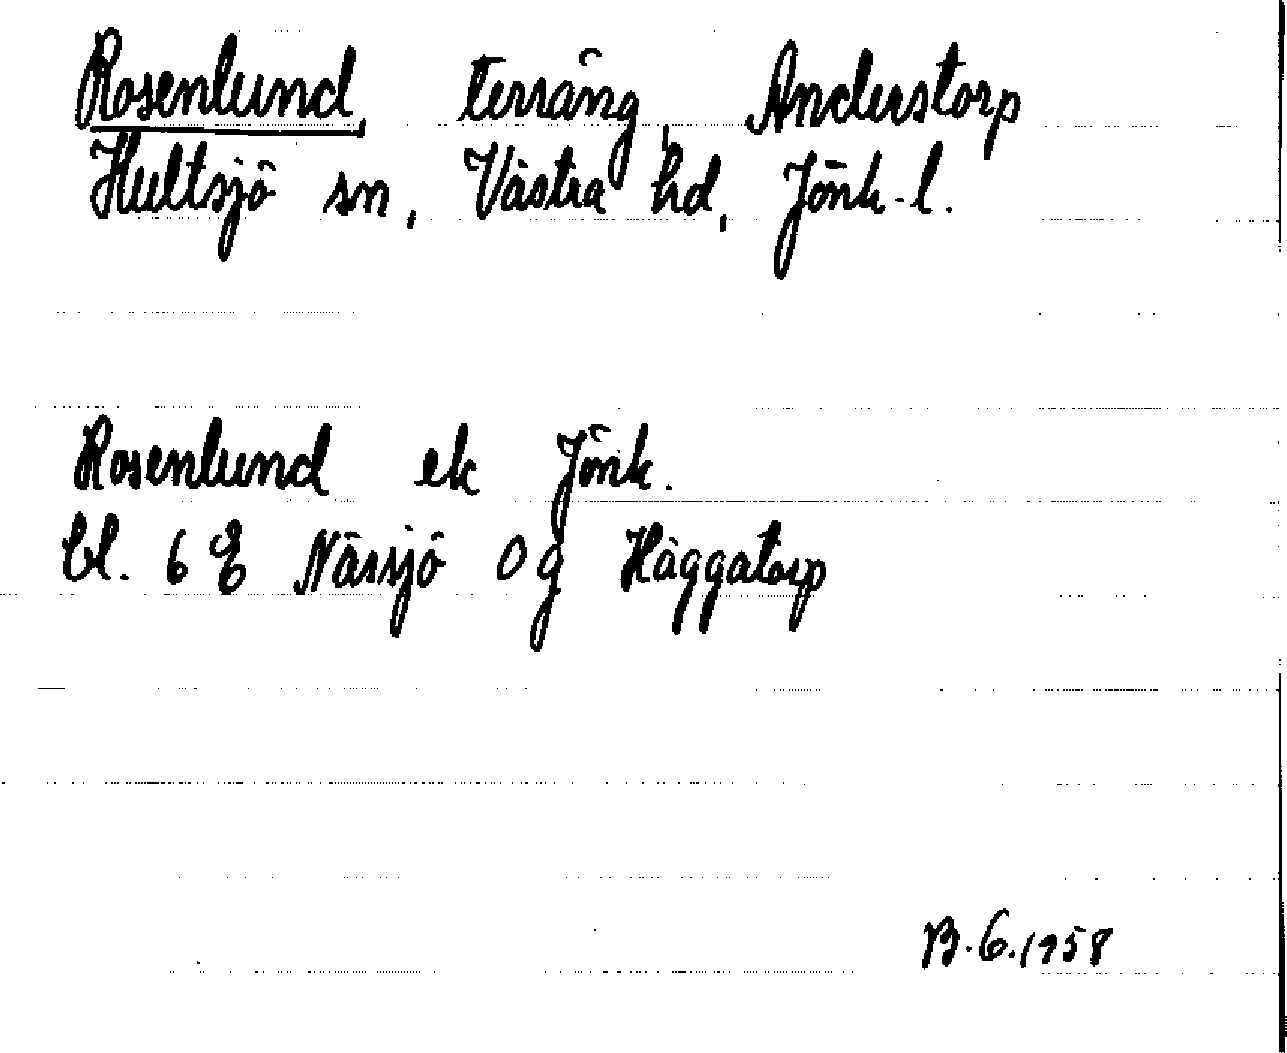 Rosenlund, terräng, Anderstorp
Hultsjö sn, Västra hd, Jönk. l.
Rosenlund ek Jönk.
bl. 6 E Nässjö 0 g Häggatorp
B.G. 1958